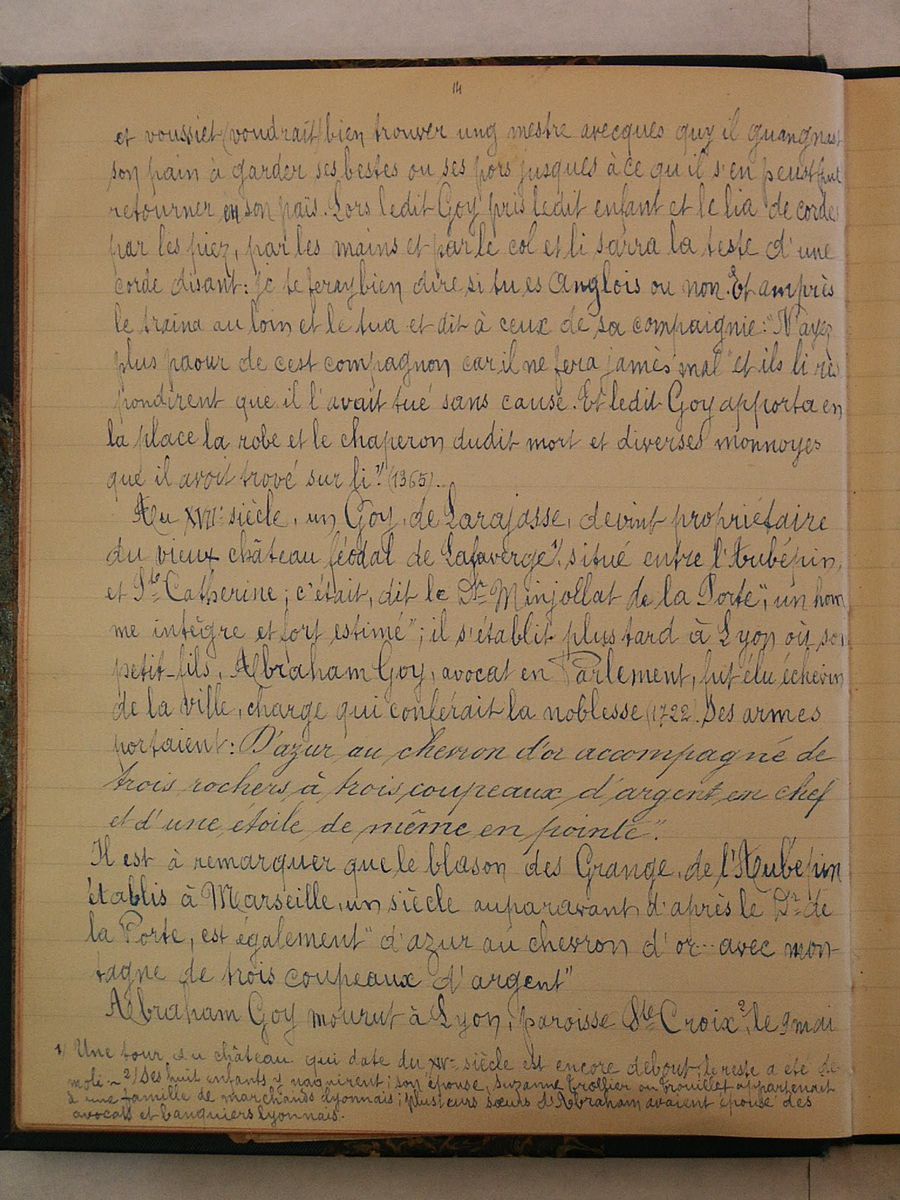 14
et voussiet (voudrait) bien trouver ung mestre avecques quy il guangnast
son pain à garder ses bestes ou ses pors jusques à ce qu'il s'en peust
retourner en son païs. Lors ledit Goy pris ledit enfant et le lia de corde
par les piez, par les mains et par le col et li sarra la teste d'une
corde disant: je te feray bien dire si tu es Anglois ou non. Et amprès
le traina au loin et le tua et dit à ceux de sa compaignie: "N'ayez
plus paour de cest compagnon car il ne fera jamès mal" et ils li rès
pondirent que il l'avait tué sans cause. Et ledit Goy apporta en
la place la robe et le chaperon dudit mort et diverses monnoyes
que il avoit trové sur li." (1365).
Au XVIIe siècle, un Goy, de Larajasse, devint propriétaire
du vieux château féodal de Lafaverge 1/, situé entre l'Aubépin,
et Ste Catherine; c'était, dit le Dr Minjollat de la Porte", un hom
me intègre et fort estimé"; il s'établit plus tard à Lyon où son
petit-fils, Abraham Goy, avocat en Parlement, fut élu échevin
de la ville, charge qui conférait la noblesse (1722). Ses armes
portaient: D'azur au chevron d'or accompagné de
trois rochers à trois coupeaux d'argent en chef
et d'une étoile de même en pointe".
Il est à remarquer que le blason des Grange, de l'Aubépin
établis à Marseille, un siècle auparavant, d'après le Dr de
la Porte, est également "d'azur au chevron d'or .. avec mon-
tagne de trois coupeaux d'argent"
Abraham Goy mourut à Lyon, paroisse Ste Croix 2, le 9 mai
1/ Une tour du château qui date du XIVe siècle est encore debout; le reste a été dé-
moli - 2/ Ses huit enfants y naquirent; son épouse, Suzanne Trollier ou Trouillet appartenait
à une famille de marchands lyonnais; plusieurs sœurs d'Abraham avaient épousé des
avocats et banquiers lyonnais.